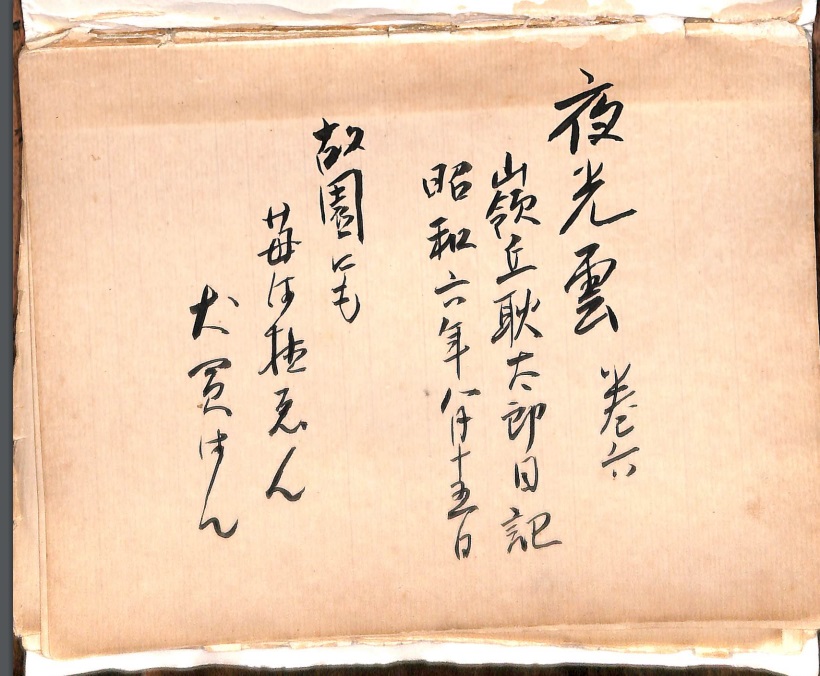 夜光雲 巻六
嶺丘耿太郎日記
昭和六年八月十五日
故園にも
苺は植ゑん
犬買はん